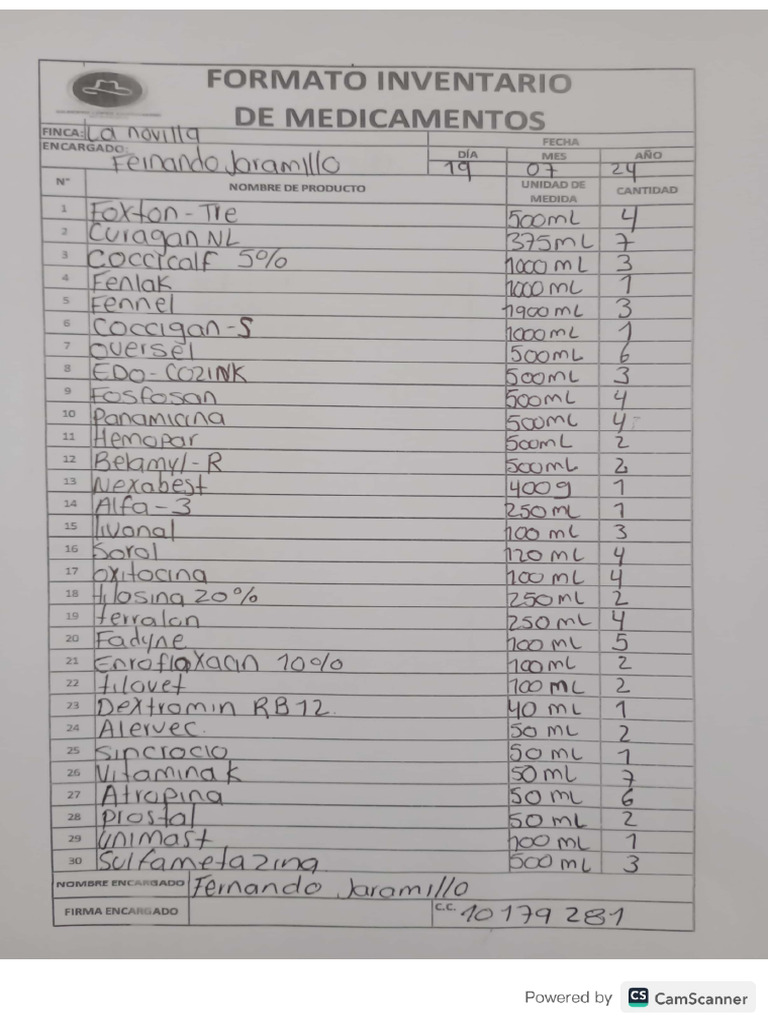 FORMATO INVENTARIO
DE MEDICAMENTOS
FINCA: La novilla
ENCARGADO: Fernando Jaramillo
FECHA
DÍA MES AÑO
19 07 24
N° NOMBRE DE PRODUCTO UNIDAD DE MEDIDA CANTIDAD
1 Foxton-Tre 500mL 4
2 Curagan NL 375mL 7
3 Coccicalf 5% 1000 mL 3
4 Fenlak 1000 mL 1
5 Fennel 1900 mL 3
6 Coccigan-S 1000mL 1
7 oversel 500mL 6
8 EDO-COZINK 500mL 3
9 Fosfosan 500mL 4
10 Panamicina 500mL 4
11 Hemopar 500mL 2
12 Belamyl-R 500mL 2
13 Nexabest 400g 1
14 Alfa-3 250 mL 1
15 livanal 100 mL 3
16 Sorol 120 mL 4
17 oxitocina 100 mL 4
18 tilosina 20% 250mL 2
19 terralon 250 mL 4
20 Fadyne 100 mL 5
21 Enrofloxacin 10% 100mL 2
22 tilovet 100 mL 2
23 Dextromin RB12. 40 mL 1
24 Alervec. 50 mL 2
25 Sincrocio 50 mL 1
26 Vitamina k 50 mL 7
27 Atropina 50 mL 6
28 Prostal 50 mL 2
29 Unimast 100 mL 1
30 Sulfametazina 500 mL 3
NOMBRE ENCARGADO Fernando Jaramillo
FIRMA ENCARGADO C.C. 10179281
Powered by CS CamScanner